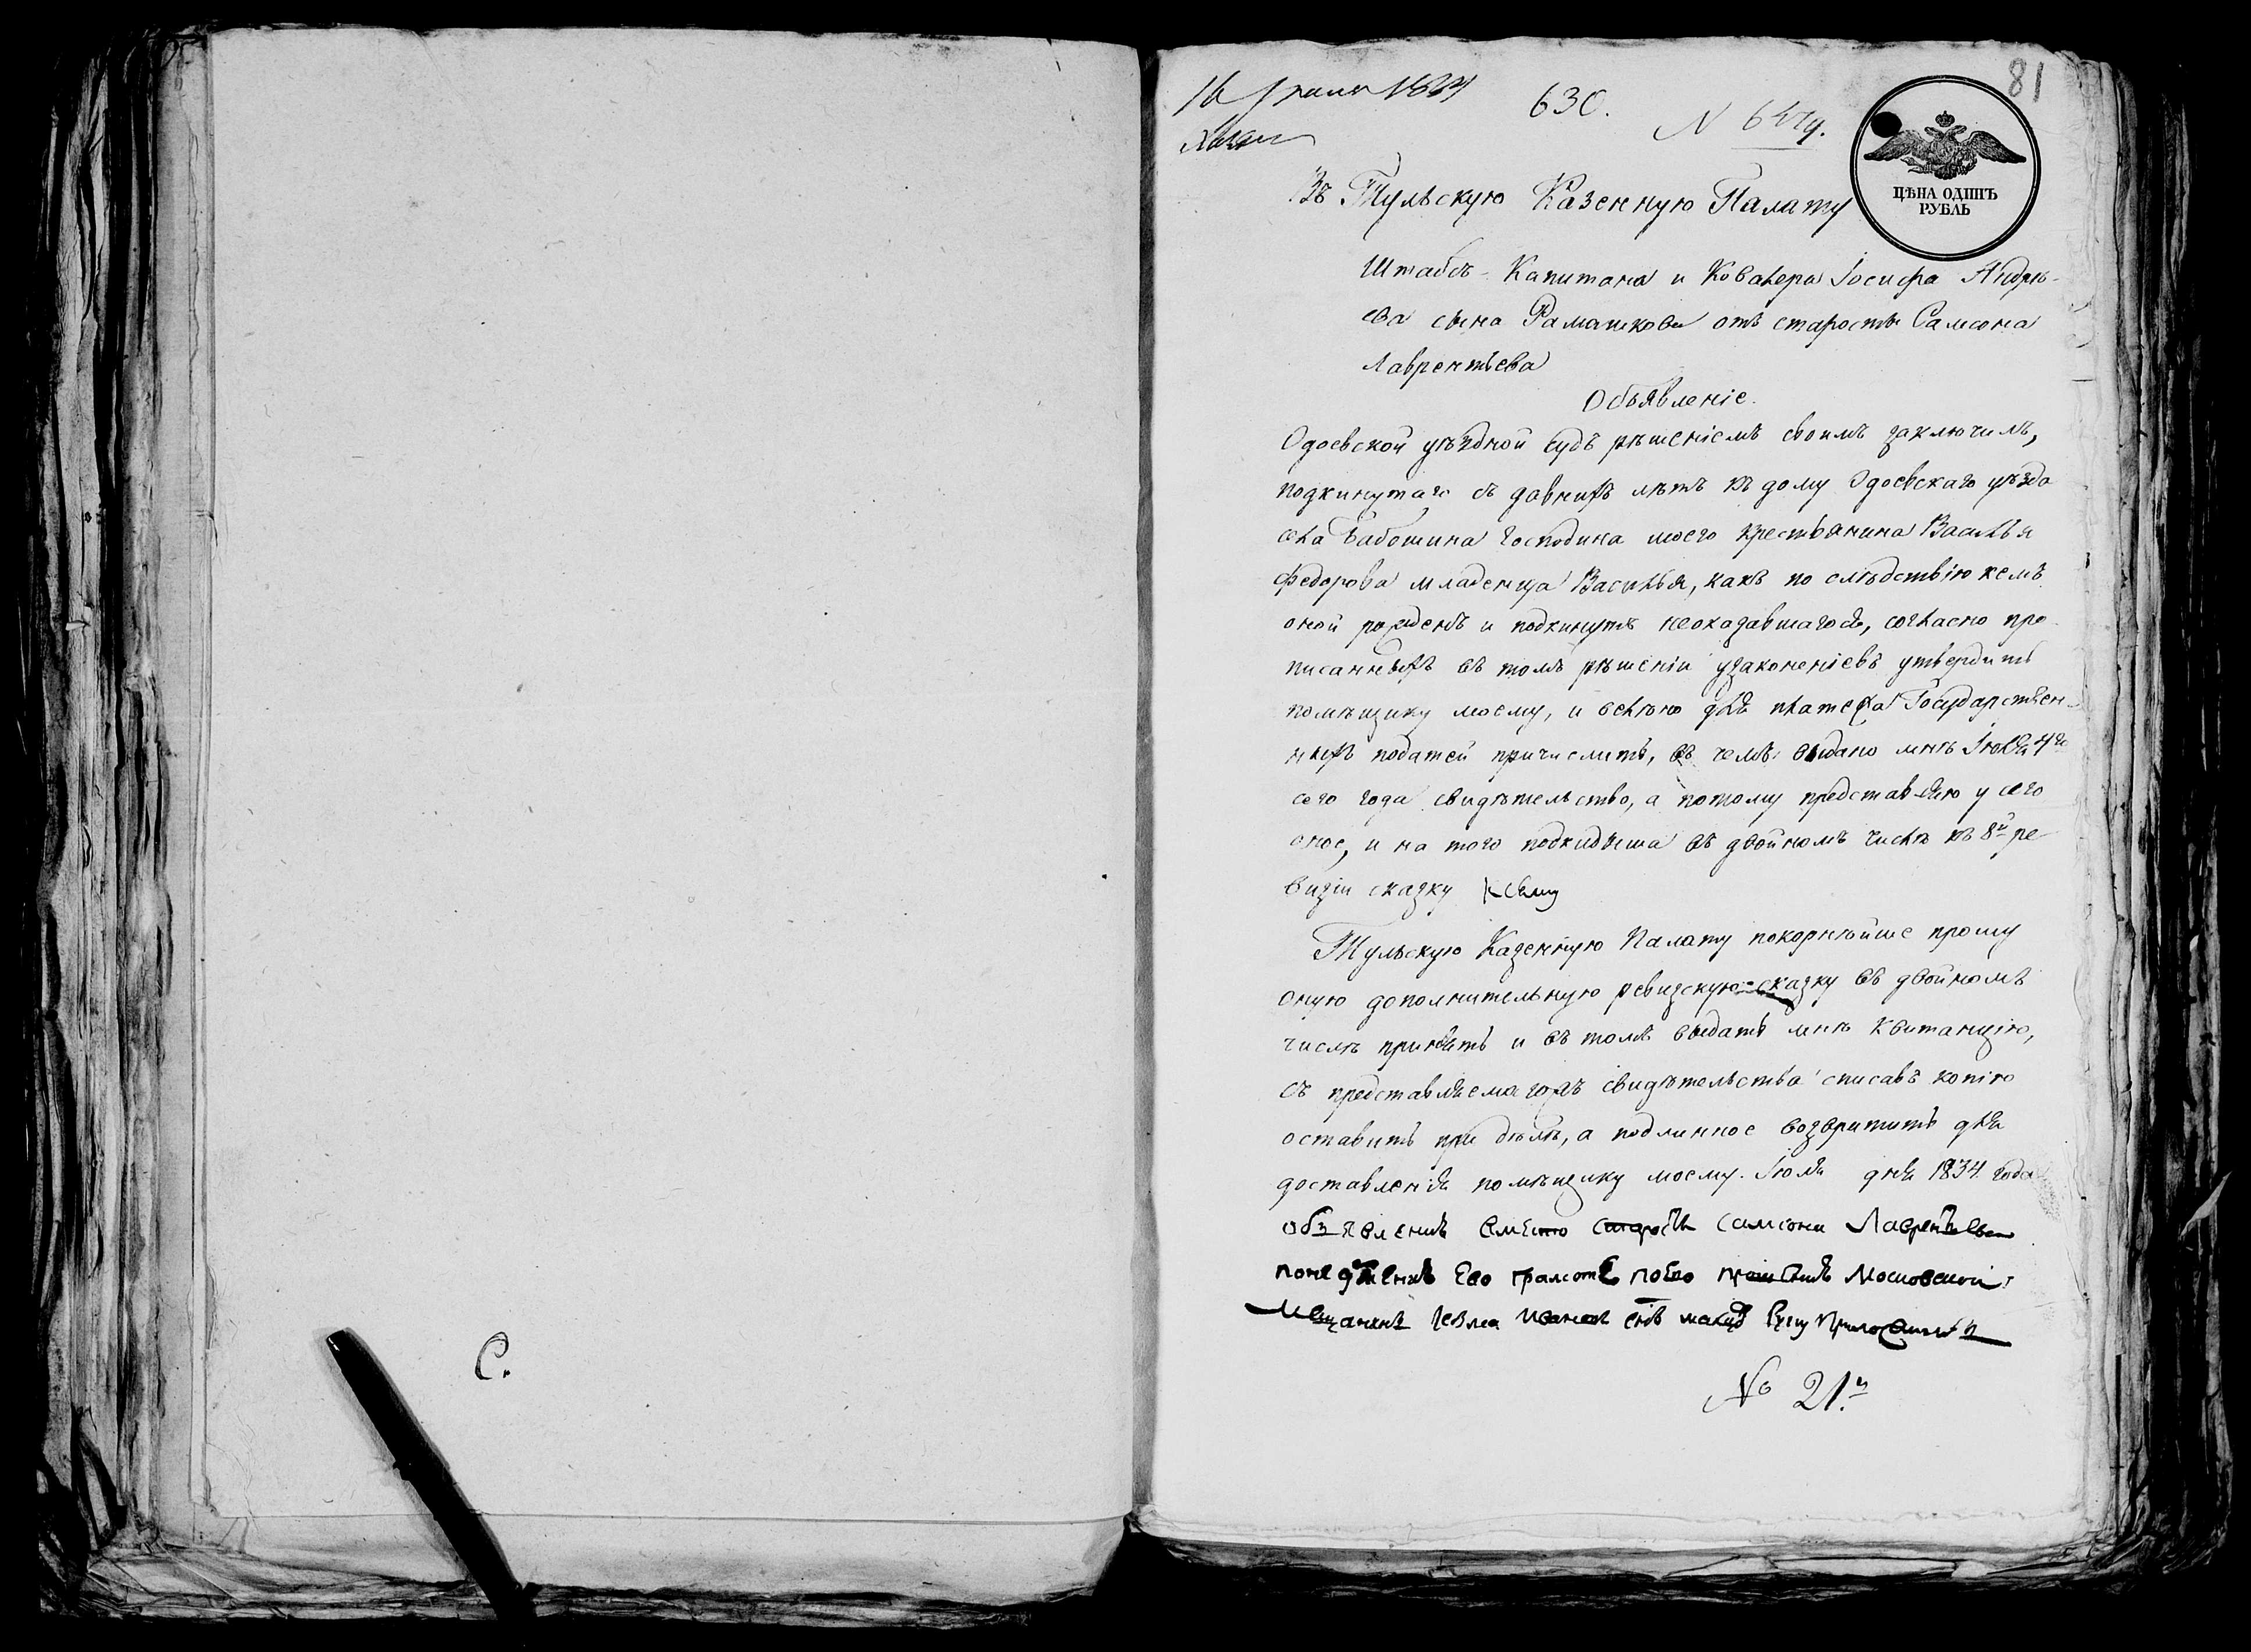 81
630.
ЦѢНА ОДИНЪ
РУБЛЬ
Въ Тульскую Казенную Палату
Штабсъ-Капитана и Ковалера Іосифа Андрѣ-
ева сына Рамашкова отъ старосты Самсона
Лаврентьева
Объявленіе.
Одоевской уѣздной судъ рѣшеніемъ своимъ заключилъ,
подкинутаго съ давнихъ лѣтъ къ дому Одоевскаго уѣзда
села Бабошина Господина моего крестьянина Василья
Федорова младенца Василья, какъ по слѣдствію кемъ
оной рожденъ и подкинутъ неоказавшагося, согласно про-
писанныхъ въ томъ рѣшеніи узаконеніевъ утвердить
помѣщику моему, и велѣно для платежа Государствен-
ныхъ податей причислить, въ чемъ выдано мнѣ Іюля 4го
сего года свидѣтельство, а потому представляю у сего
оное, и на того подкидыша въ двойномъ числѣ къ 8й ре-
визіи сказку к сему
Тульскую Казенную Палату покорнѣйше прошу
оную дополнительную ревизскую сказку въ двойномъ
числѣ принять и въ томъ выдать мнѣ квитанцію,
съ представляемагожъ свидѣтельства списавъ копію
оставить при дѣлѣ, а подлинное возвратить для
доставленія помѣщику моему. Іюля дня 1834 года
объявленію вместо старосты Самсона Лаврентьева
Его грамоте поево прошенію Московской
мещанинъ Иванов руку приложилъ
№ 21й
С.